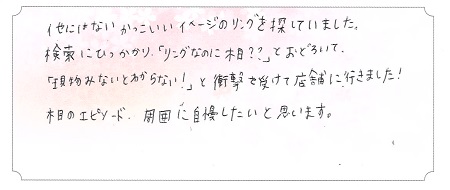 他にはないかっこいいイメージのリングを探していました。
検索にひっかかり、「リングなのに木目??」とおどろいて、
「現物みないとわからない!」と衝撃を受けて店舗に行きました!
木目のエピソード、周囲に自慢したいと思います。